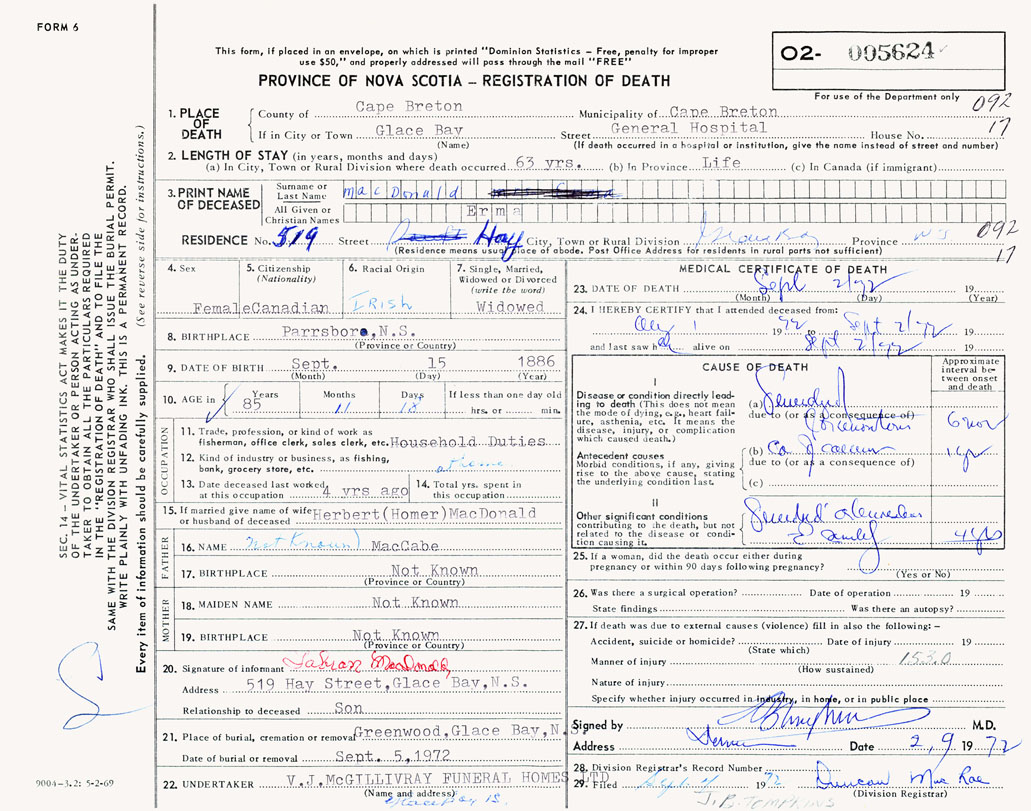 FORM 6
This form, if placed in an envelope, on which is printed "Dominion Statistics – Free, penalty for improper
use $50," and properly addressed will pass through the mail "FREE"
PROVINCE OF NOVA SCOTIA – REGISTRATION OF DEATH
02- 005624
For use of the Department only
092
17
1. PLACE OF DEATH
County of Cape Breton Municipality of Cape Breton
If in City or Town Glace Bay Street General Hospital House No.
(Name) (If death occurred in a hospital or institution, give the name instead of street and number)
2. LENGTH OF STAY (in years, months and days)
(a) In City, Town or Rural Division where death occurred 63 yrs. (b) In Province Life (c) In Canada (if immigrant)
3. PRINT NAME OF DECEASED
Surname or Last Name macDonald
All Given or Christian Names Erma
RESIDENCE No. 519 Street Hay City, Town or Rural Division Province N S
(Residence means usual place of abode. Post Office Address for residents in rural parts not sufficient)
092
17
4. Sex
Female
5. Citizenship
(Nationality)
Canadian
6. Racial Origin
IRish
7. Single, Married,
Widowed or Divorced
(write the word)
Widowed
8. BIRTHPLACE Parrsboro, N.S.
(Province or Country)
9. DATE OF BIRTH Sept. 15 1886
(Month) (Day) (Year)
10. AGE in
Years 85
Months 11
Days 18
If less than one day
hrs. or min.
OCCUPATION
11. Trade, profession, or kind of work as
fisherman, office clerk, sales clerk, etc. Household Duties
12. Kind of industry or business, as fishing,
bank, grocery store, etc. at home
13. Date deceased last worked
at this occupation 4 yrs ago
14. Total yrs. spent in
this occupation
15. If married give name of wife
or husband of deceased Herbert (Homer) MacDonald
FATHER
16. NAME (Not Known) MacCabe
17. BIRTHPLACE Not Known
(Province or Country)
MOTHER
18. MAIDEN NAME Not Known
19. BIRTHPLACE Not Known
(Province or Country)
20. Signature of informant MacDonald
Address 519 Hay Street, Glace Bay, N.S.
Relationship to deceased Son
21. Place of burial, cremation or removal Greenwood, Glace Bay, N.S.
Date of burial or removal Sept. 5, 1972
22. UNDERTAKER V.J. McGILLIVRAY FUNERAL HOMES LTD
(Name and address)
Glace Bay
MEDICAL CERTIFICATE OF DEATH
23. DATE OF DEATH Sept 2/72 19
(Month) (Day) (Year)
24. I HEREBY CERTIFY that I attended deceased from:
1 1972 to Sept 2/72 19
and last saw h alive on Sept 2/72 19
CAUSE OF DEATH
Approximate interval between onset and death
I
Disease or condition directly leading to death (This does not mean the mode of dying, e.g., heart failure, asthenia, etc. It means the disease, injury, or complication which caused death.)
(a)
due to (or as a consequence of)
6 mos
Antecedent causes
Morbid conditions, if any, giving rise to the above cause, stating the underlying condition last.
(b) Ca of
due to (or as a consequence of)
1 yr
(c)
II
Other significant conditions contributing to the death, but not related to the disease or condition causing it.
25. If a woman, did the death occur either during
pregnancy or within 90 days following pregnancy?
(Yes or No)
26. Was there a surgical operation? Date of operation 19
State findings Was there an autopsy?
27. If death was due to external causes (violence) fill in also the following: –
Accident, suicide or homicide? Date of injury 19
(State which)
Manner of injury 153.0
(How sustained)
Nature of injury
Specify whether injury occurred in industry, in home, or in public place
Signed by M.D.
Address Date 2, 9, 1972
28. Division Registrar's Record Number
29. Filed 72 Duncan Mac Rae
(Division Registrar)
J. B. TOMPKINS
SEC. 14 – VITAL STATISTICS ACT MAKES IT THE DUTY
OF THE UNDERTAKER OR PERSON ACTING AS UNDER-
TAKER TO OBTAIN ALL THE PARTICULARS REQUIRED
IN THE "REGISTRATION OF DEATH" AND TO FILE THE
SAME WITH THE DIVISION REGISTRAR WHO SHALL ISSUE THE BURIAL PERMIT.
WRITE PLAINLY WITH UNFADING INK. THIS IS A PERMANENT RECORD.
Every item of information should be carefully supplied. (See reverse side for instructions.)
900A–3.2: 5-2-69